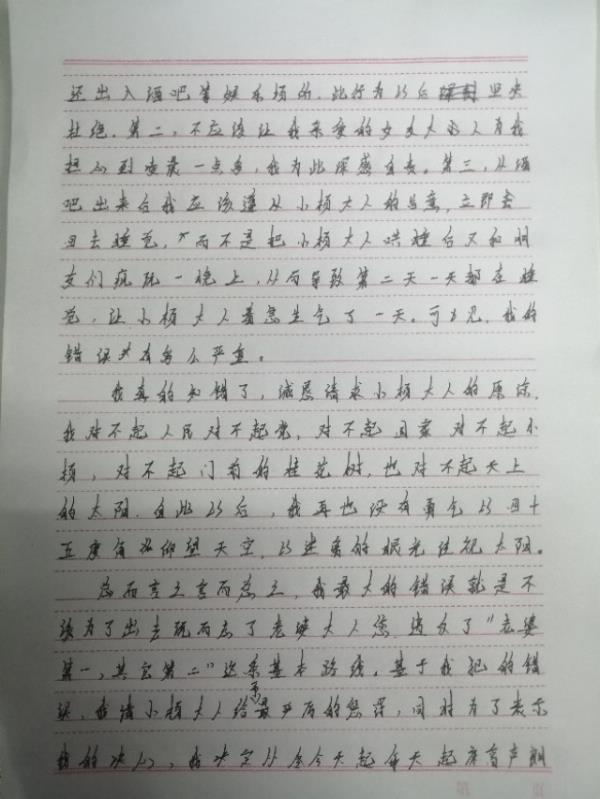 还出入酒吧等娱乐场所，此行为以后坚决
杜绝。第二，不应该让我亲爱的女友大人为我
担心到凌晨一点多，我为此深感自责。第三，从酒
吧出来后我应该遵从小杨大人的旨意，立即去
回去睡觉，而不是把小杨大人哄睡后又和朋
友们疯玩一晚上，从而导致第二天一天都在睡
觉，让小杨大人着急生气了一天。可见，我的
错误有多么严重。
我真的知错了，诚恳请求小杨大人的原谅。
我对不起人民对不起党，对不起国家 对不起小
杨，对不起门前的桂花树，也对不起天上
的太阳。自此以后，我再也没有勇气以四十
五度角仰望天空，以迷离的眼光注视太阳。
总而言之言而总之，我最大的错误就是不
该为了出去玩而忘了老婆大人您，违反了“老婆
第一，其它第二”这条基本路线。基于我犯的错
误，我请小杨大人给予最严厉的惩罚，同时为了表示
我的决心，我决定从今天起每天起床高声朗